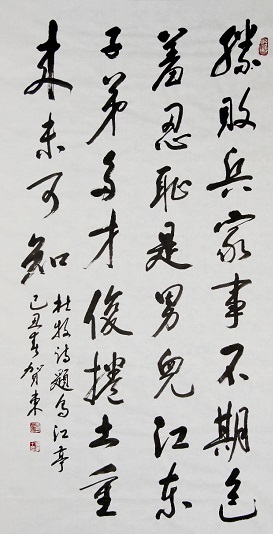 勝敗兵家事不期包
羞忍耻是男兒江东
子弟多才俊捲土重
来未可知
杜牧诗题乌江亭
己丑春贺东